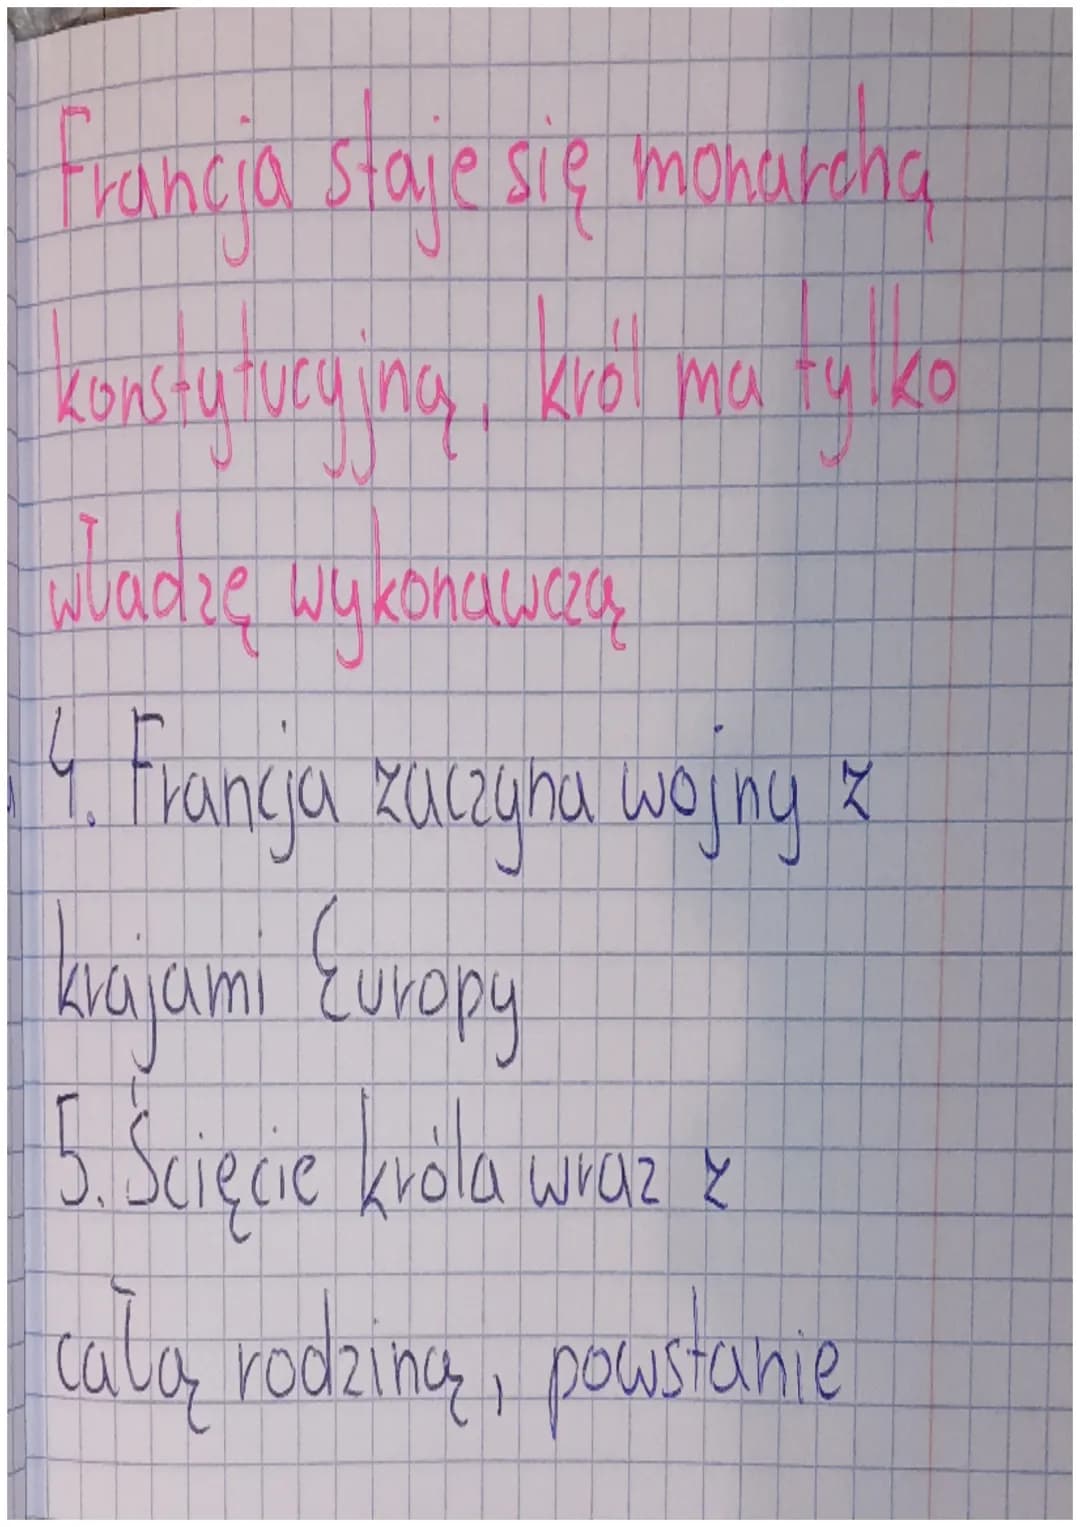 Francja staje się monarchą
konstytucyjną, król ma tylko
władzę wykonawczą
4. Francja zaczyna wojny z
krajami Europy
5. Ścięcie króla wraz z
całą rodziną, powstanie